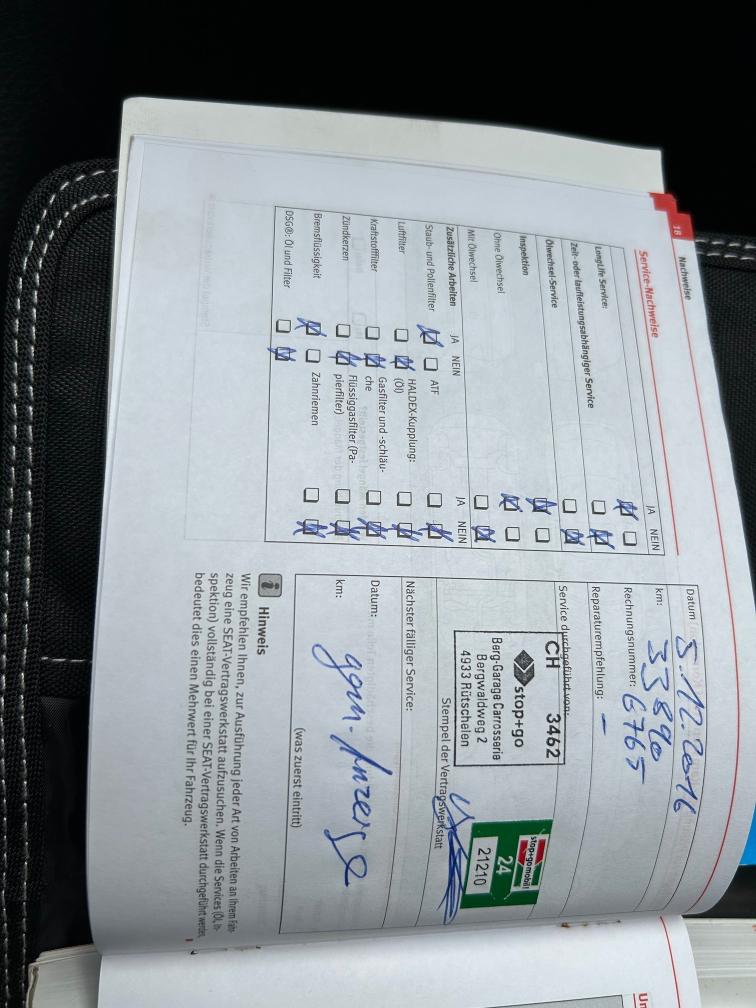 18
Nachweise
Service-Nachweise
JA NEIN
LongLife Service:
Zeit- oder laufleistungsabhängiger Service
Ölwechsel-Service
Inspektion
Ohne Ölwechsel
Mit Ölwechsel
Zusätzliche Arbeiten JA NEIN JA NEIN
Staub- und Pollenfilter ATF
Luftfilter HALDEX-Kupplung:
(Öl)
Kraftstofffilter Gasfilter und -schläu-
che
Zündkerzen Flüssiggasfilter (Pa-
pierfilter)
Bremsflüssigkeit Zahnriemen
DSG®: Öl und Filter
Datum: 5.12.2016
km: 33890
Rechnungsnummer: 6765
Reparaturempfehlung: -
Service durchgeführt von:
CH 3462
stop+go
Berg-Garage Carrosserie
Bergwaldweg 2
4933 Rütschelen
stop+go mobil
24
21210
Stempel der Vertragswerkstatt
Nächster fälliger Service:
Datum:
km:
(was zuerst eintritt)
Hinweis
Wir empfehlen Ihnen, zur Ausführung jeder Art von Arbeiten an Ihrem Fahr-
zeug eine SEAT-Vertragswerkstatt aufzusuchen. Wenn die Services (Öl, In-
spektion) vollständig bei einer SEAT-Vertragswerkstatt durchgeführt werden,
bedeutet dies einen Mehrwert für Ihr Fahrzeug.